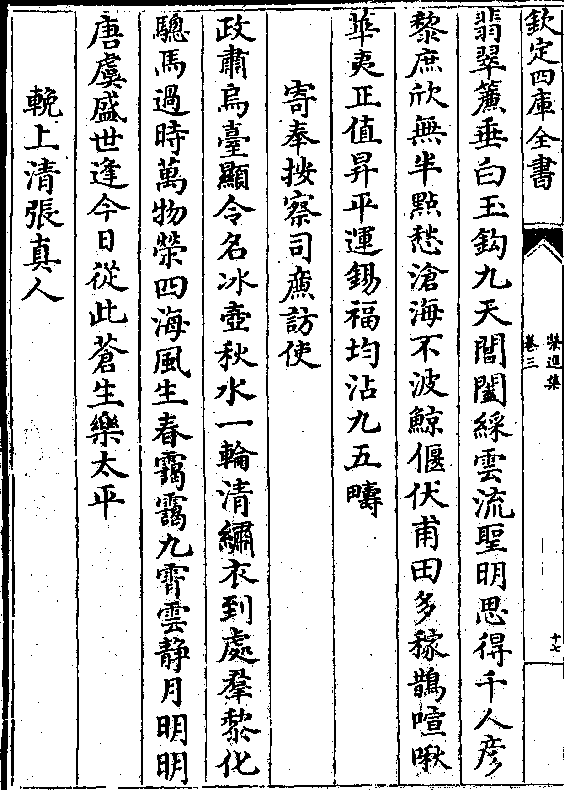 欽定四庫全書
榮進集
卷三
十七
翡翠簾垂白玉鈎九天閶闔綵雲流聖明思得千人彥
黎庶欣無半點愁滄海不波鯨偃伏甫田多稼鵲喧啾
華夷正值昇平運錫福均沾九五疇
寄奉按察司廉訪使
政肅烏臺顯令名冰壺秋水一輪清繡衣到處羣黎化
驄馬過時萬物榮四海風生春靄靄九霄雲静月明明
唐虞盛世逢今日從此蒼生樂太平
輓上清張真人